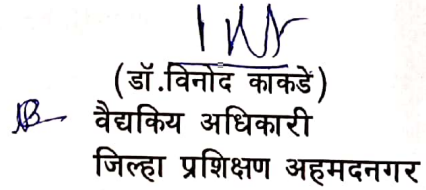 (डॉ.विनोद काकडे)
वैद्यकिय अधिकारी
जिल्हा प्रशिक्षण अहमदनगर